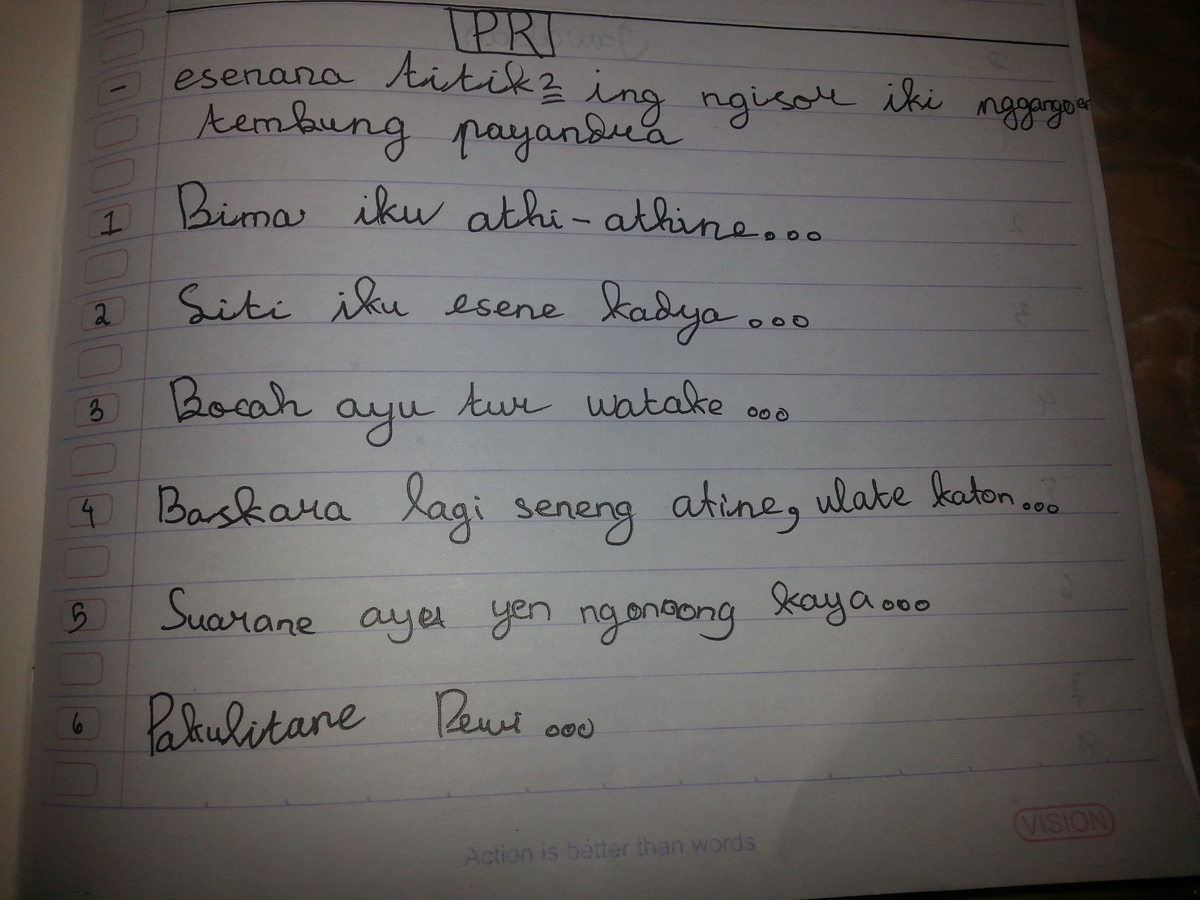 PR
- esenana titik2 ing ngisor iki nggango
tembung payandra
1 Bima iku athi-athine...
2 Siti iku esene kadya...
3 Bocah ayu tur watake...
4 Baskara lagi seneng atine, ulate katon...
5 Suarane ayu yen ngonoong kaya...
6 Pakulitane Dewi...
VISION
Action is better than words